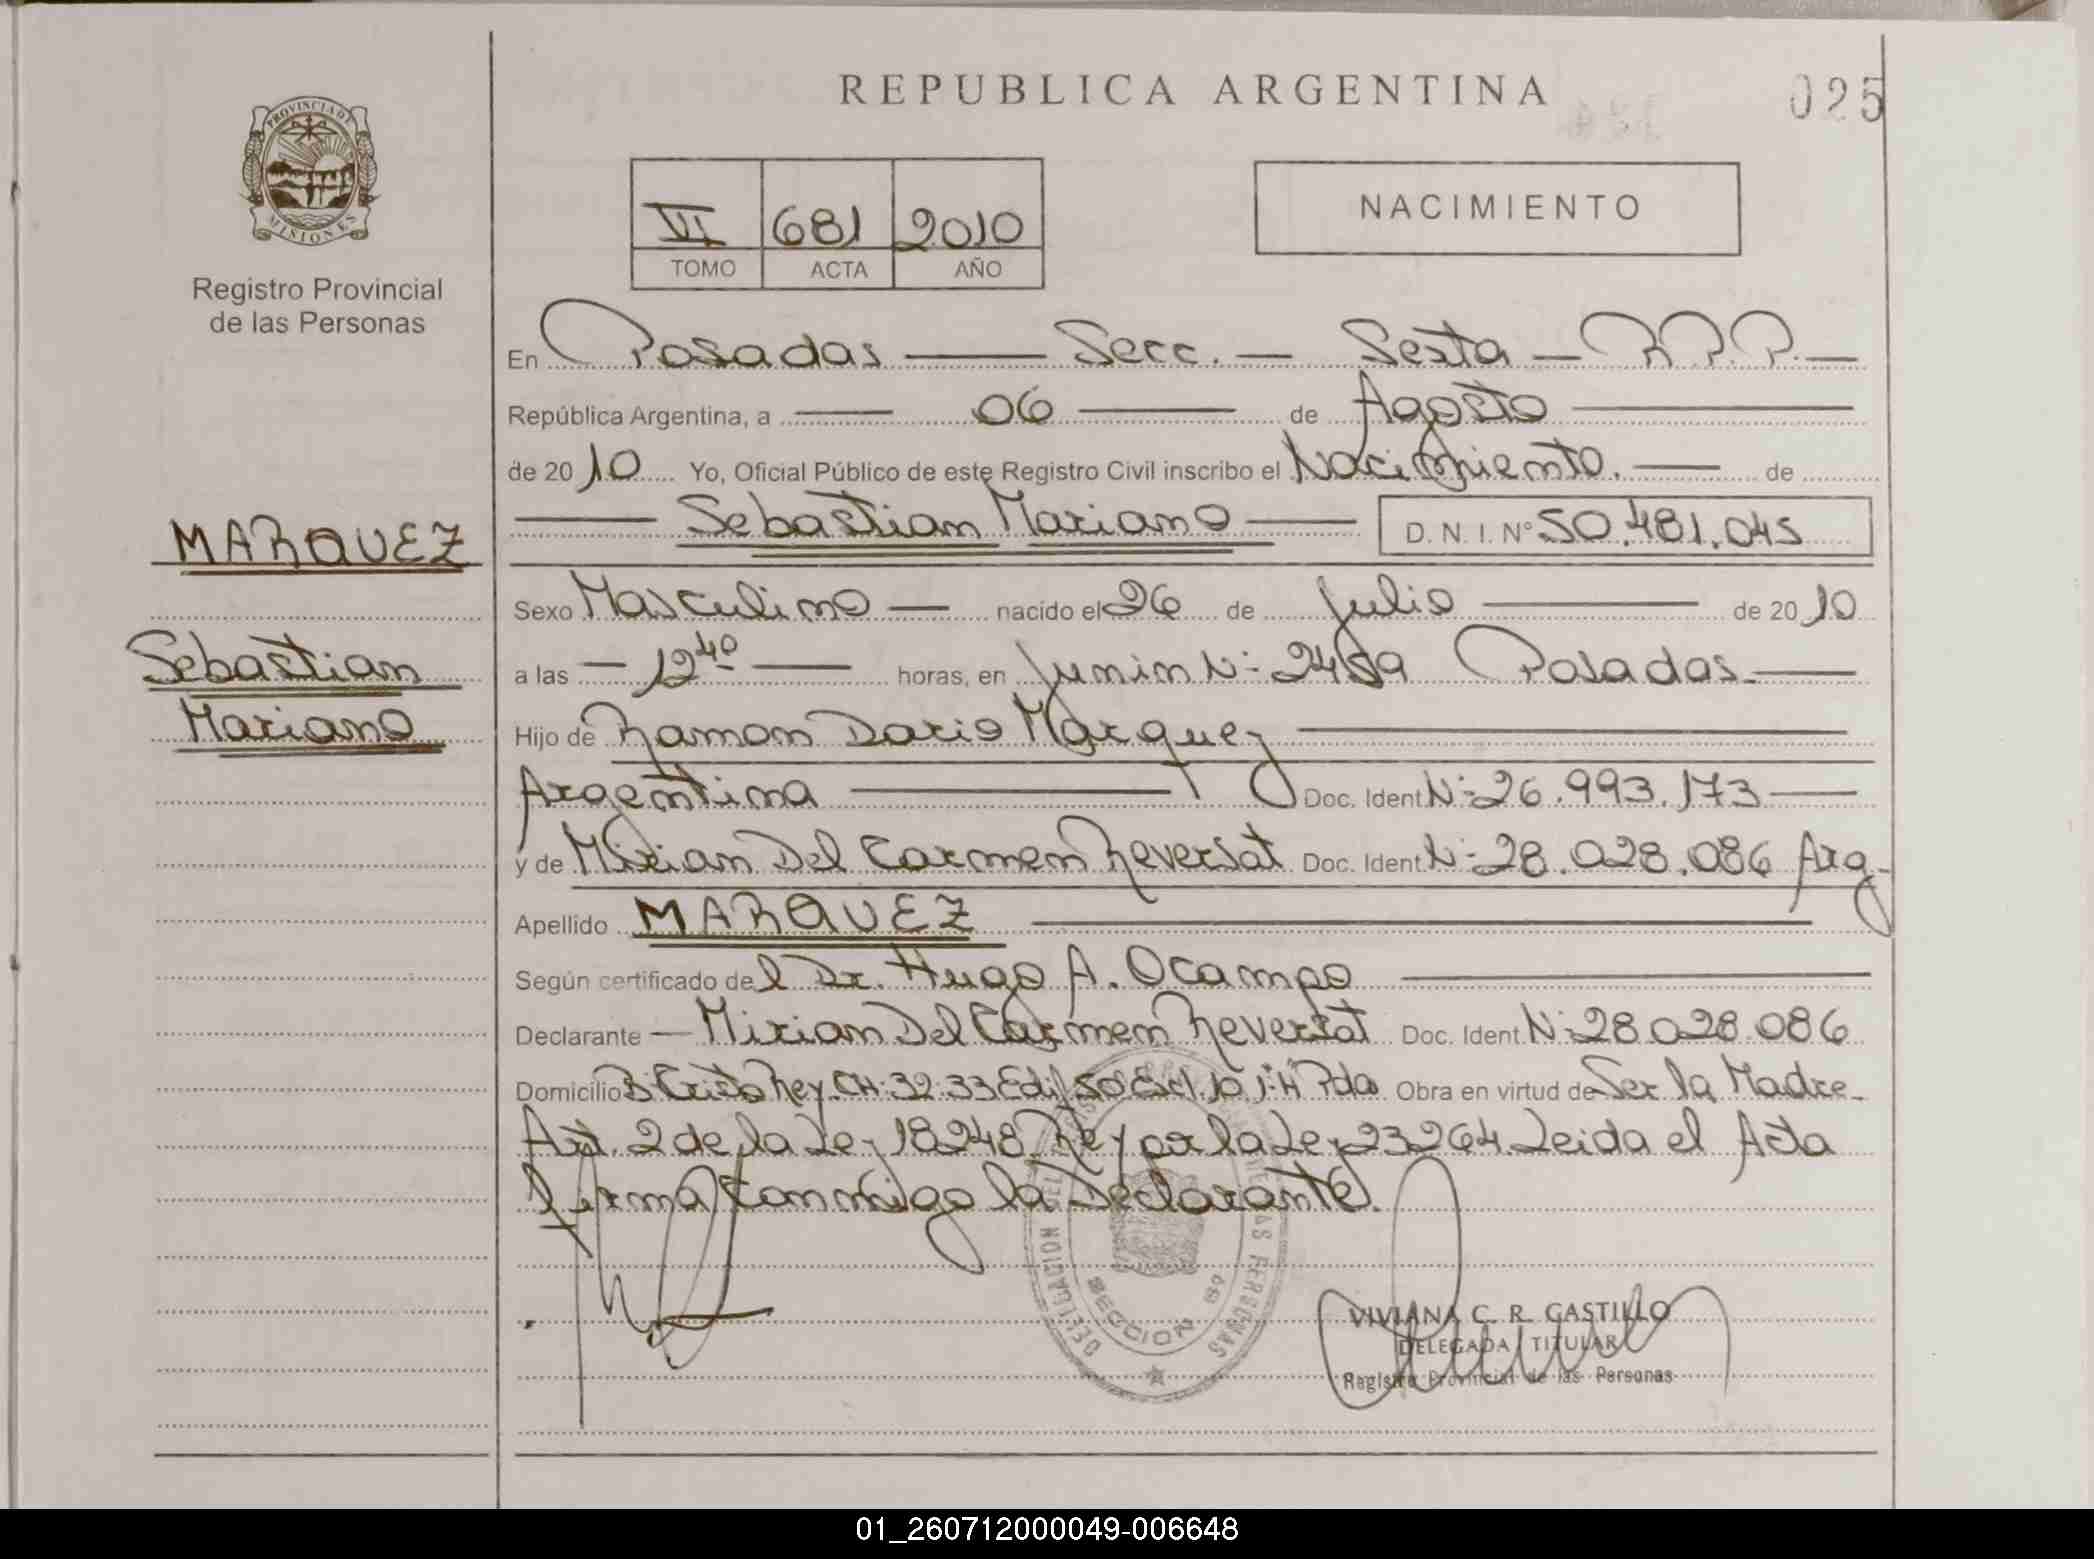 REPUBLICA ARGENTINA
025
PROVINCIA DE MISIONES
Registro Provincial
de las Personas
VI 681 2010
TOMO ACTA AÑO
NACIMIENTO
En Posadas Secc. Sexta R.P.P.
República Argentina, a 06 de Agosto
de 2010 Yo, Oficial Público de este Registro Civil inscribo el Nacimiento. de
Sebastian Mariano D. N. I. Nº 50.481.045
MARQUEZ
Sebastian
Mariano
Sexo Masculino nacido el 26 de Julio de 2010
a las 12 40 horas, en Junin Nº 2459 Posadas.
Hijo de Ramon Dario Marquez
Argentina Doc. Ident. Nº 26.993.173
y de Mirian Del Carmen Reversat Doc. Ident. Nº 28.028.086 Arg.
Apellido MARQUEZ
Según certificado del Dr. Hugo A. Ocampo
Declarante Mirian Del Carmen Reversat Doc. Ident. Nº 28.028.086
Domicilio Bº Cristo Rey. CH: 32.33 Edif 50 Esc. 10 Pdas Obra en virtud de Ser la Madre.
Art. 2 de la Ley 18248 Re por la Ley 23264. Leida el Acta
firma conmigo la Declarante.
DELEGACION DEL
DE LAS PERSONAS
SECCION 6º
VIVIANA C. R. CASTILLO
DELEGADA TITULAR
Registro Provincial de las Personas
01_260712000049-006648